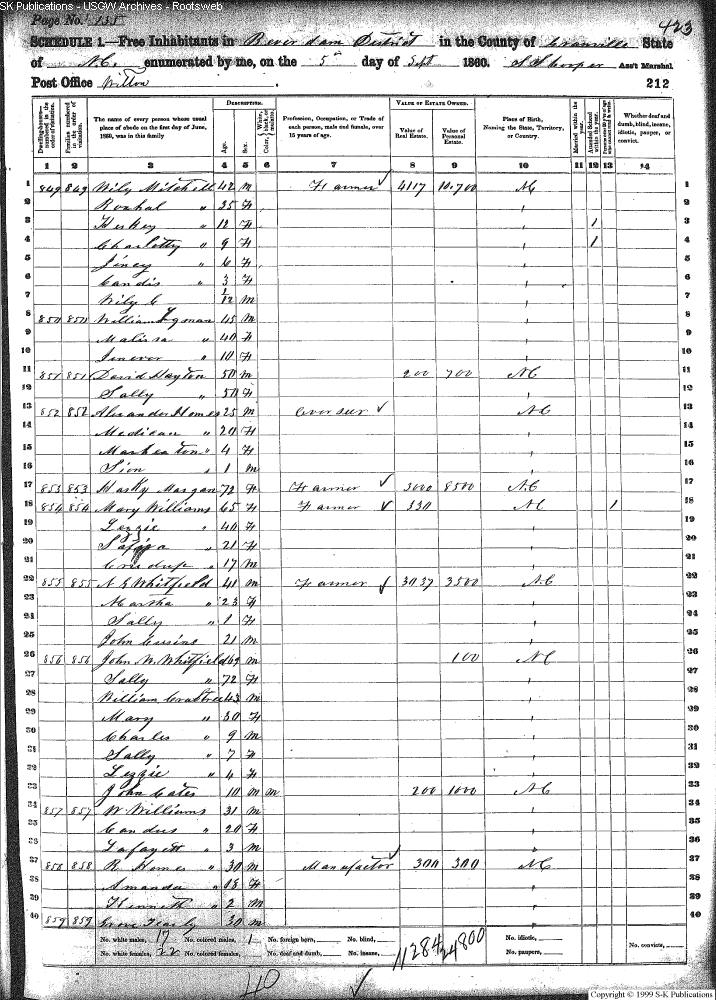 SK Publications - USGW Archives - Rootsweb
Page No. 135
423
SCHEDULE 1.—Free Inhabitants in Bever dam District in the County of Granville State
of N.C. enumerated by me, on the 5th day of Sept 1860. Ass't Marshal
Post Office Wilton 212
Dwelling-houses—numbered in the order of visitation.
Families numbered in the order of visitation.
The name of every person whose usual place of abode on the first day of June, 1860, was in this family
DESCRIPTION.
Age.
Sex.
White, black, or mulatto. Color,
Profession, Occupation, or Trade of each person, male and female, over 15 years of age.
VALUE OF ESTATE OWNED.
Value of Real Estate.
Value of Personal Estate.
Place of Birth, Naming the State, Territory, or Country.
Married within the year.
Attended School within the year.
Whether deaf and dumb, blind, insane, idiotic, pauper, or convict.
1 2 3 4 5 6 7 8 9 10 11 12 13 14
1 849 849 Wily Mitchell 42 m Farmer 4117 10,700 NC 1
2 " 35 F 2
3 " 12 F 1 3
4 Charlotty " 9 F 1 4
5 Jincy " 6 F 5
6 Candis " 3 F 6
7 Wily C 1/12 m 7
8 850 850 William 45 m 8
9 Malissa " 40 F 9
10 " 10 F 10
11 851 851 David Hayton 50 m 200 700 NC 11
12 Sally " 50 F 12
13 852 852 Alexander Homes 25 m Overseer NC 13
14 " 20 F 14
15 " 4 F 15
16 Sion " 1 m 16
17 853 853 Morgan 72 F Farmer 3000 8500 N.C 17
18 854 854 Mary Williams 65 F Farmer 330 NC 1 18
19 " 40 F 19
20 " 21 F 20
21 Crudup " 17 m 21
22 855 855 N G Whitfield 41 m Farmer 3037 3500 N.C 22
23 Martha " 23 F 23
24 Sally " 1 F 24
25 John 21 m 25
26 856 856 John W. Whitfield 69 m 100 NC 26
27 Sally " 72 F 27
28 William Crabtree 43 m 28
29 Mary " 30 F 29
30 Charles " 9 m
31 Sally " 7 F
32 Lizzie " 4 F
33 John Cates 10 m m 200 1000 NC
34 857 857 W Williams 31 m
35 Candus " 20 F
36 Lafayett " 3 m
37 858 858 R. Homes " 30 m Manufactor 300 300 NC
38 Amanda " 18 F
39 " 2 m
40 859 859 30 m 40
No. white males, 17 No. colored males, 1 No. foreign born, No. blind, 11284 24800 No. idiotic, No. convicts,
No. white females, 22 No. colored females, No. deaf and dumb, No. insane, No. paupers,
40
Copyright © 1999 S-K Publications